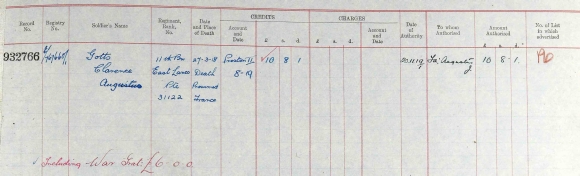 CREDITS CHARGES
Record No. Registry No. Soldier's Name Regiment, Rank, No. Date and Place of Death Account and Date £ s. d. £ s. d. Account and Date Date of Authority To whom Authorised Amount Authorised £ s. d. No. of List in which advertised
932766 Gotts 11th Bn 27-3-18 Preston 10 8 1 Fa: Augustus 10 8 1
Clarence East Lancs Death 8-19
Augustus Pte Presumed
31122 France
Including War Grat: £6-0-0